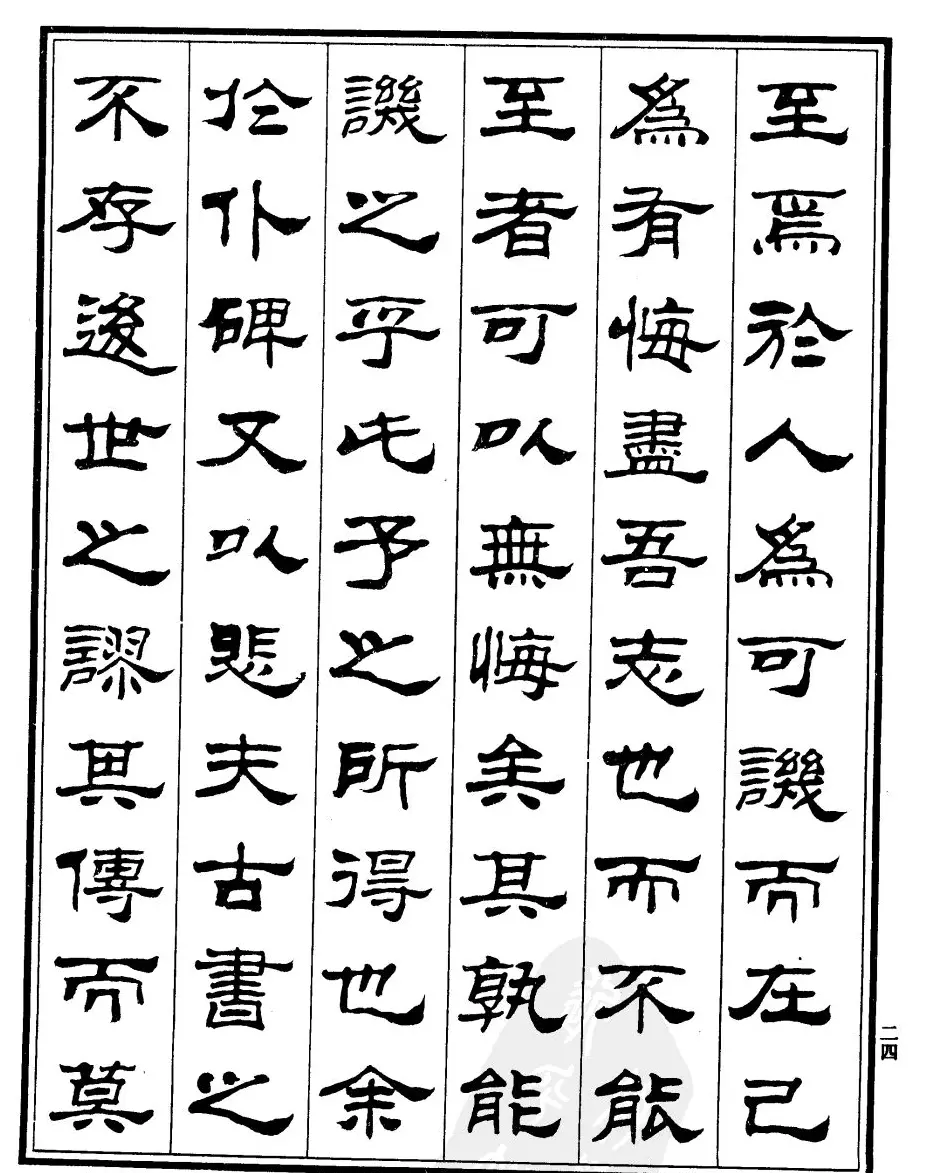 至焉於人爲可譏而在己
爲有悔盡吾志也而不能
至者可以無悔矣其孰能
譏之乎此予之所得也余
於仆碑又以悲夫古書之
不存後世之謬其傳而莫
二四